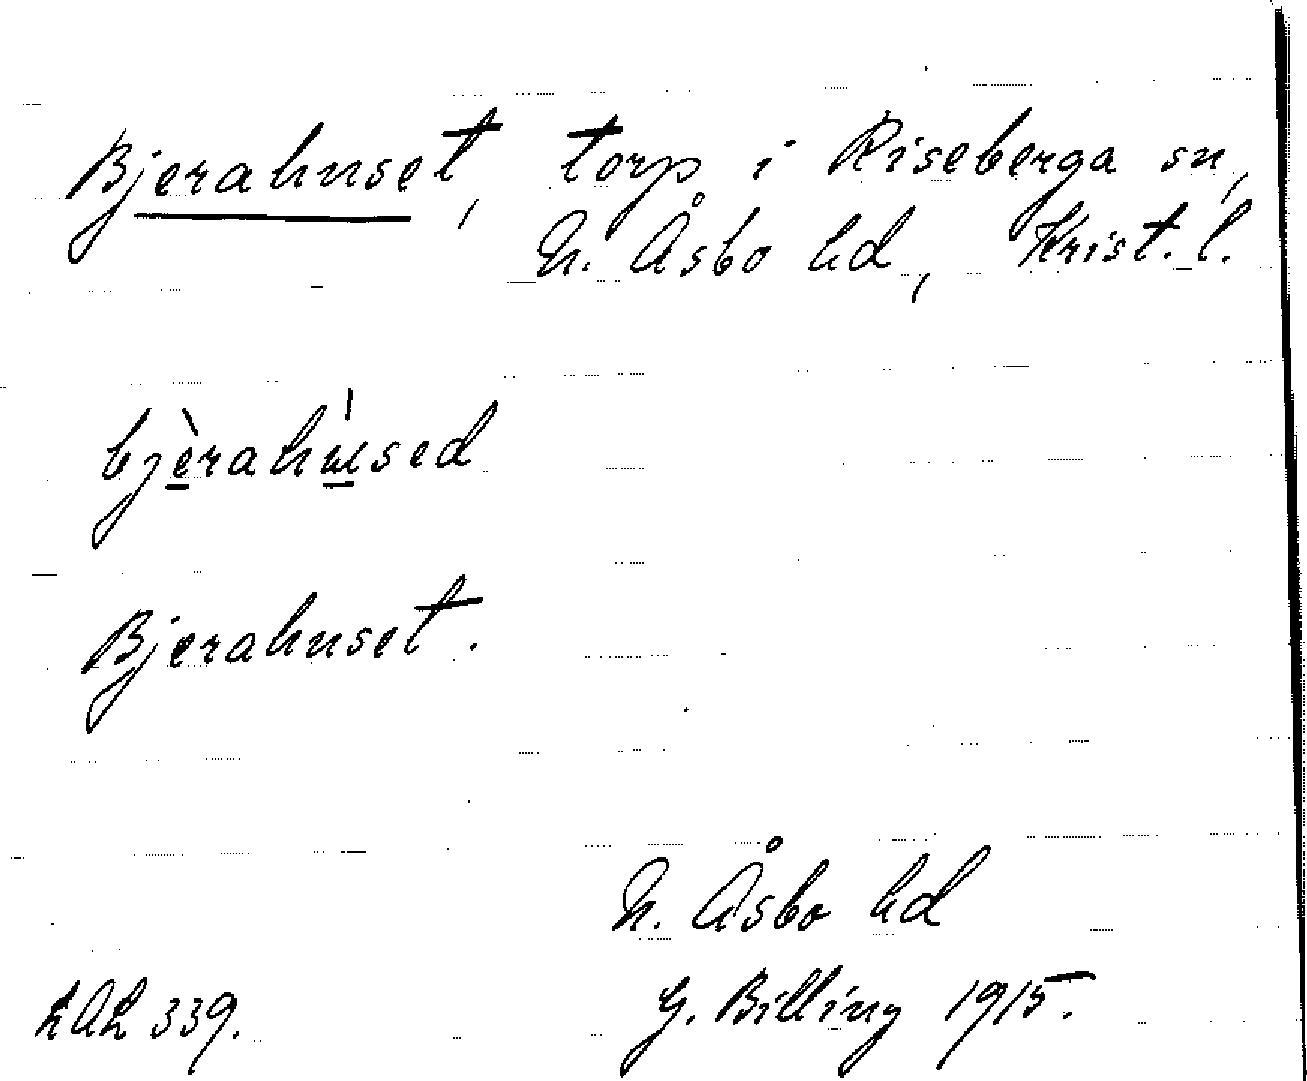 Bjerahuset, torp i Riseberga sn,
N. Åsbo hd, Krist. l.
bjèrahúsed
Bjerahuset.
N. Åsbo hd
LAL 339.
G. Billing 1915.